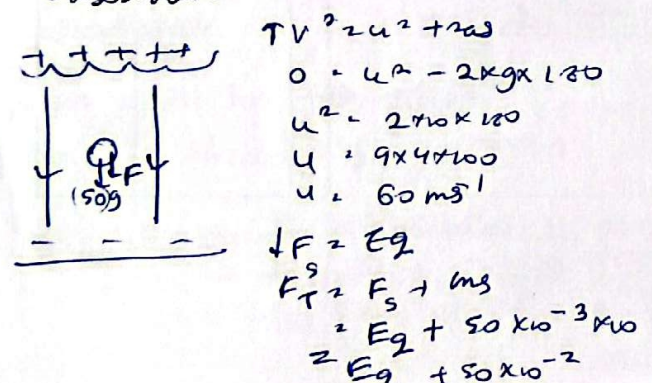 + + + ++
F
(50)g
- - -
↑ v² = u² + 2as
0 = u² - 2×g×180
u² = 2×10×180
u = 9×4×100
u = 60 ms⁻¹
↓F = Eq
F_T = F_s + mg
= Eq + 50×10⁻³×10
= Eq + 50×10⁻²